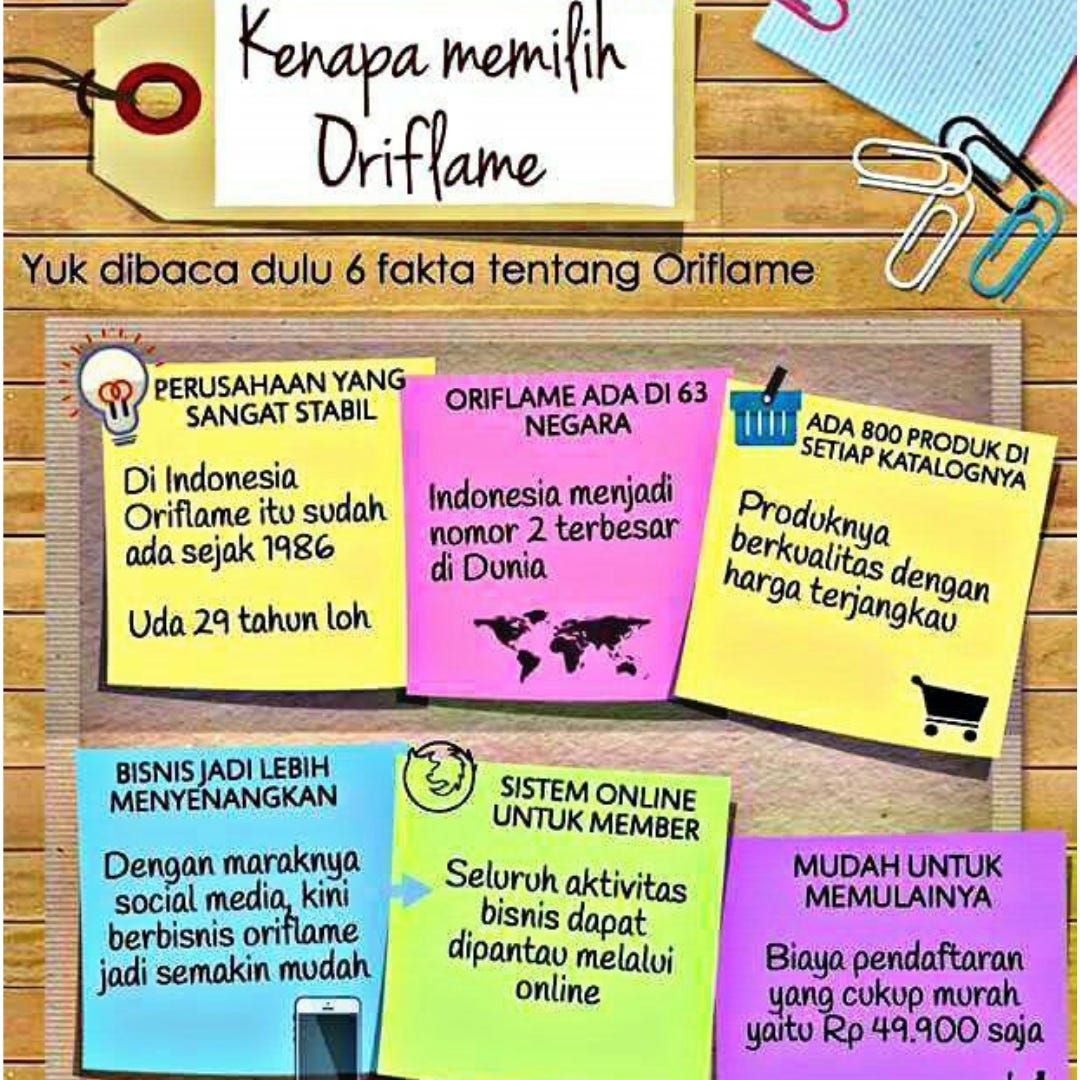 Kenapa memilih
Oriflame
Yuk dibaca dulu 6 fakta tentang Oriflame
PERUSAHAAN YANG
SANGAT STABIL
Di Indonesia
Oriflame itu sudah
ada sejak 1986
Uda 29 tahun loh
ORIFLAME ADA DI 63
NEGARA
Indonesia menjadi
nomor 2 terbesar
di Dunia
ADA 800 PRODUK DI
SETIAP KATALOGNYA
Produknya
berkualitas dengan
harga terjangkau
BISNIS JADI LEBIH
MENYENANGKAN
Dengan maraknya
social media, kini
berbisnis oriflame
jadi semakin mudah
SISTEM ONLINE
UNTUK MEMBER
Seluruh aktivitas
bisnis dapat
dipantau melalui
online
MUDAH UNTUK
MEMULAINYA
Biaya pendaftaran
yang cukup murah
yaitu Rp 49.900 saja